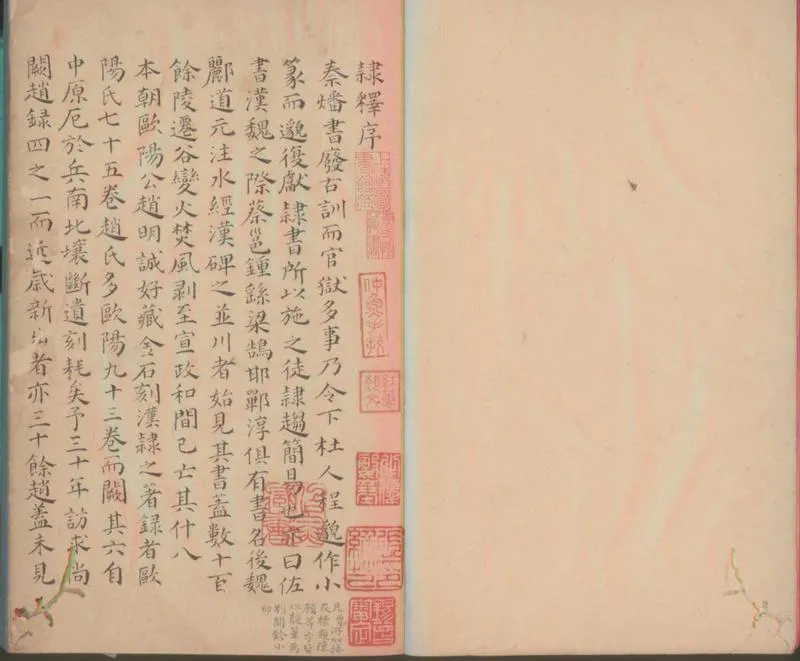 隷釋序
秦燔書廢古訓而官獄多事乃令下杜人程邈作小
篆而邈復獻隷書所以施之徒隷趨簡易也亦曰佐
書漢魏之際蔡邕鍾繇梁鵠邯鄲淳俱有書名後魏
酈道元注水經漢碑之並川者始見其書蓋數十百
餘陵遷谷變火焚風剥至宣政和間已亡其什八
本朝歐陽公趙明誠好藏金石刻漢隷之著録者歐
陽氏七十五卷趙氏多歐陽九十三卷而闕其六自
中原厄於兵南北壤斷遺刻耗矣予三十年訪求尚
闕趙録四之一而近歲新出者亦三十餘趙蓋未見